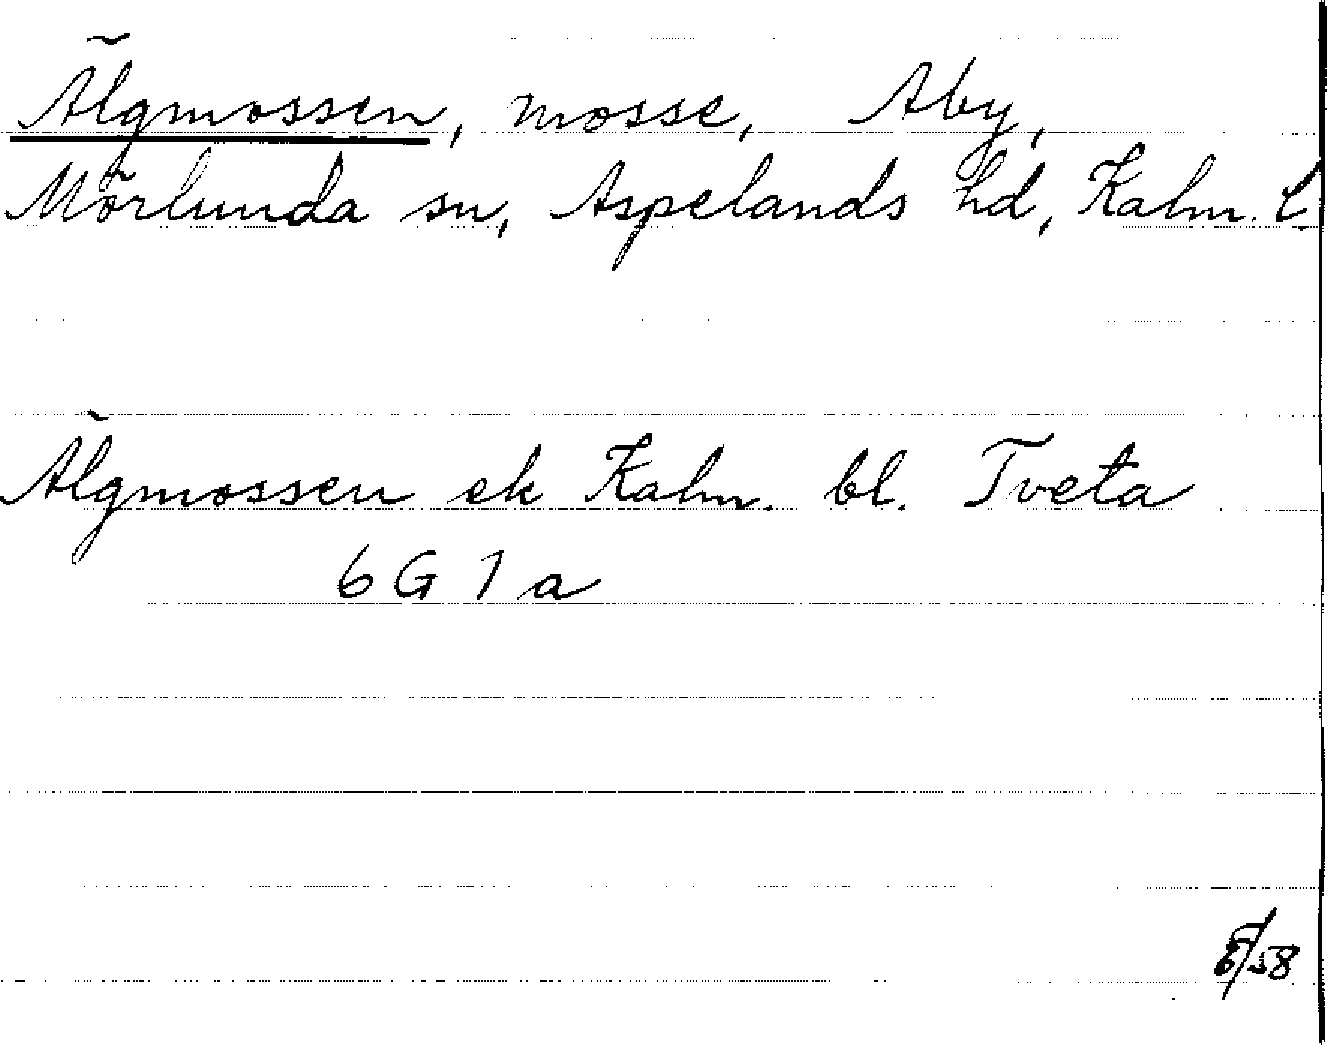 Älgmossen, mosse, Åby,
Mörlunda sn, Aspelands hd, Kalm. l.
Älgmossen ek Kalm. bl. Tveta
6 G 1 a